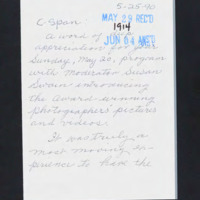 5-25-90
MAY 29 REC'D
1914
JUN 04 ANS'D
C-Span
A word of
appreciation for your
Sunday, May 20, program
with Moderator Susan
Swain introducing
the award-winning
photographers' pictures
and videos.
It was truly a
most moving ex-
perience to have the